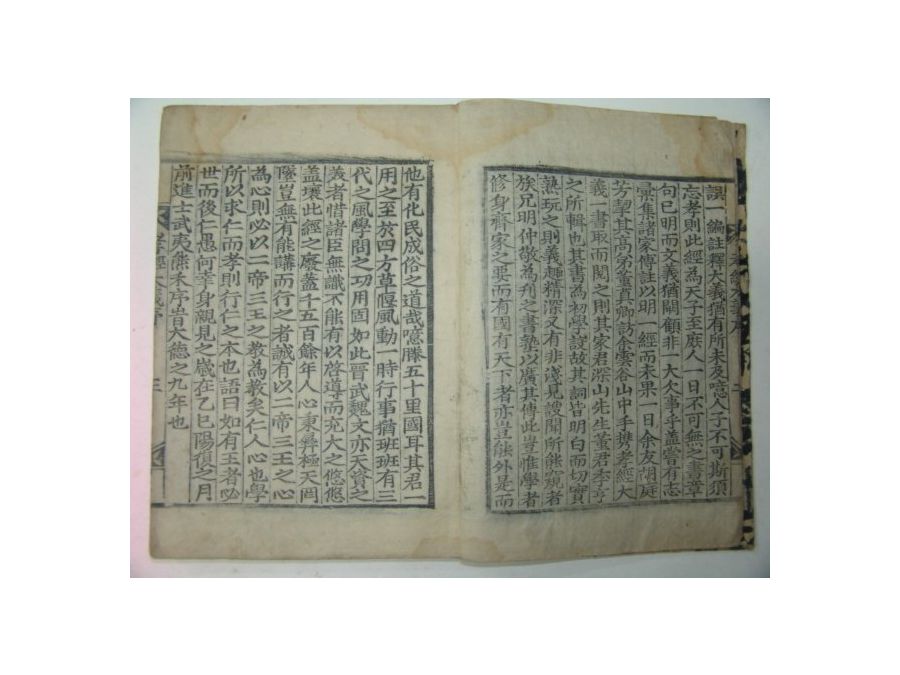 誤一編註釋大義猶有所未及噫人子不可斯須
忘孝則此經為天子至庶人一日不可無之書章
句已明而文義猶闕顧非一大欠事乎蓋嘗有志
彙集諸家傳註以明一經而未果一日余友胡庭
芳挈其高弟董真卿訪余雲谷山中手携孝經大
義一書取而閱之則其家君深山先生董君季亨
之所輯也其書為初學設故其詞皆明白而切實
熟玩之則義趣精深又有非淺見謏聞所能窺者
族兄明仲敬為刊之書塾以廣其傳此豈惟學者
修身齊家之要而有國有天下者亦豈能外是而
他有化民成俗之道哉噫滕五十里國耳其君一
用之至於四方草偃風動一時行事猶班班有三
代之風學問之功用固如此晉武魏文亦天資之
義者惜諸臣無識不能有以啓導而充大之悠悠
蓋壤此經之廢蓋千五百餘年人心秉彛極天罔
墜豈無有能講而行之者誠有以二帝三王之心
為心則必以二帝三王之教為教矣仁人心也學
所以求仁而孝則行仁之本也語曰如有王者必
世而後仁愚何幸身親見之歲在乙巳陽復之月
前進士武夷熊禾序旹大德之九年也
孝經大義序
二
孝經大義序
三